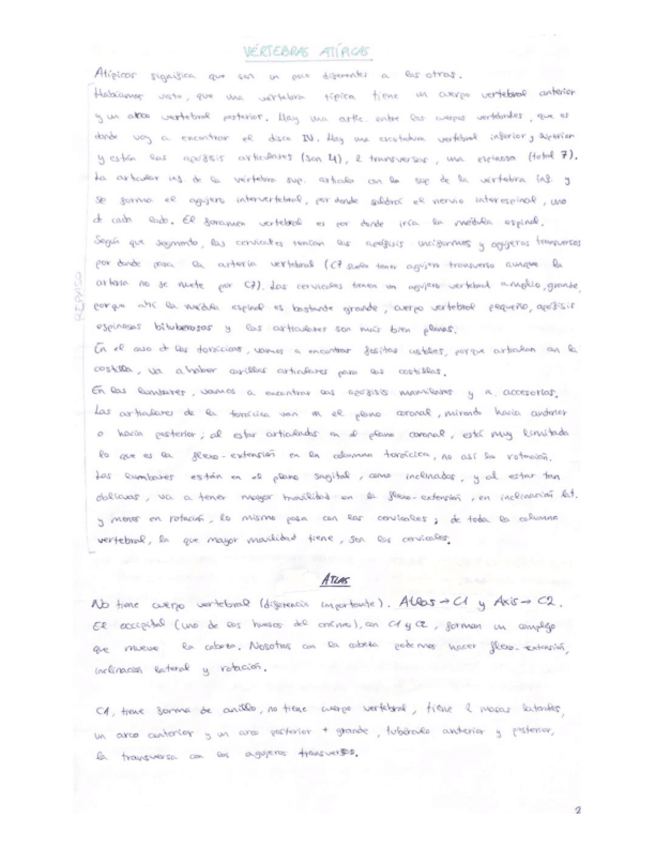 VÉRTEBRAS ATÍPICAS
Atípicas significa que son un poco diferentes a las otras.
Habíamos visto, que una vértebra típica tiene un cuerpo vertebral anterior
y un arco vertebral posterior. Hay una artic. entre los cuerpos vertebrales, que es
donde voy a encontrar el disco IV. Hay una escotadura vertebral inferior y superior
y están las apófisis articulares (son 4), 2 transversas, una espinosa (total 7).
La articular inf. de la vértebra sup. articula con la sup. de la vértebra inf. y
se forma el agujero intervertebral, por donde saldrá el nervio interespinal, uno
de cada lado. El foramen vertebral es por donde iría la médula espinal.
Según que segmento, las cervicales tenían las apófisis unciformes y agujeros transversos
por donde pasa la arteria vertebral (C7 suele tener agujero transverso aunque la
arteria no se mete por C7). Las cervicales tienen un agujero vertebral amplio, grande,
porque ahí la médula espinal es bastante grande, cuerpo vertebral pequeño, apófisis
espinosas bituberosas y las articulares son más bien planas.
En el caso de las torácicas, vamos a encontrar fositas costales, porque articulan con la
costilla, va a haber carillas articulares para las costillas.
En las lumbares, vamos a encontrar las apófisis mamilares y a. accesorias.
Las articulares de la torácica van en el plano coronal, mirando hacia anterior
o hacia posterior; al estar articulados en el plano coronal, está muy limitada
lo que es la flexo-extensión en la columna torácica, no así la rotación.
Las lumbares están en el plano sagital, como inclinados, y al estar tan
oblicuas, va a tener mayor movilidad en la flexo-extensión, en inclinación lat.
y menos en rotación, lo mismo pasa con las cervicales; de toda la columna
vertebral, la que mayor movilidad tiene, son las cervicales.
REPASO
ATLAS
No tiene cuerpo vertebral (diferencia importante). Atlas → C1 y Axis → C2.
El occipital (uno de los huesos del cráneo), con C1 y C2, forman un complejo
que mueve la cabeza. Nosotros con la cabeza podemos hacer flexo-extensión,
inclinación lateral y rotación.
C1, tiene forma de anillo, no tiene cuerpo vertebral, tiene 2 masas laterales,
un arco anterior y un arco posterior + grande, tubérculo anterior y posterior,
la transversa con los agujeros transversos.
2